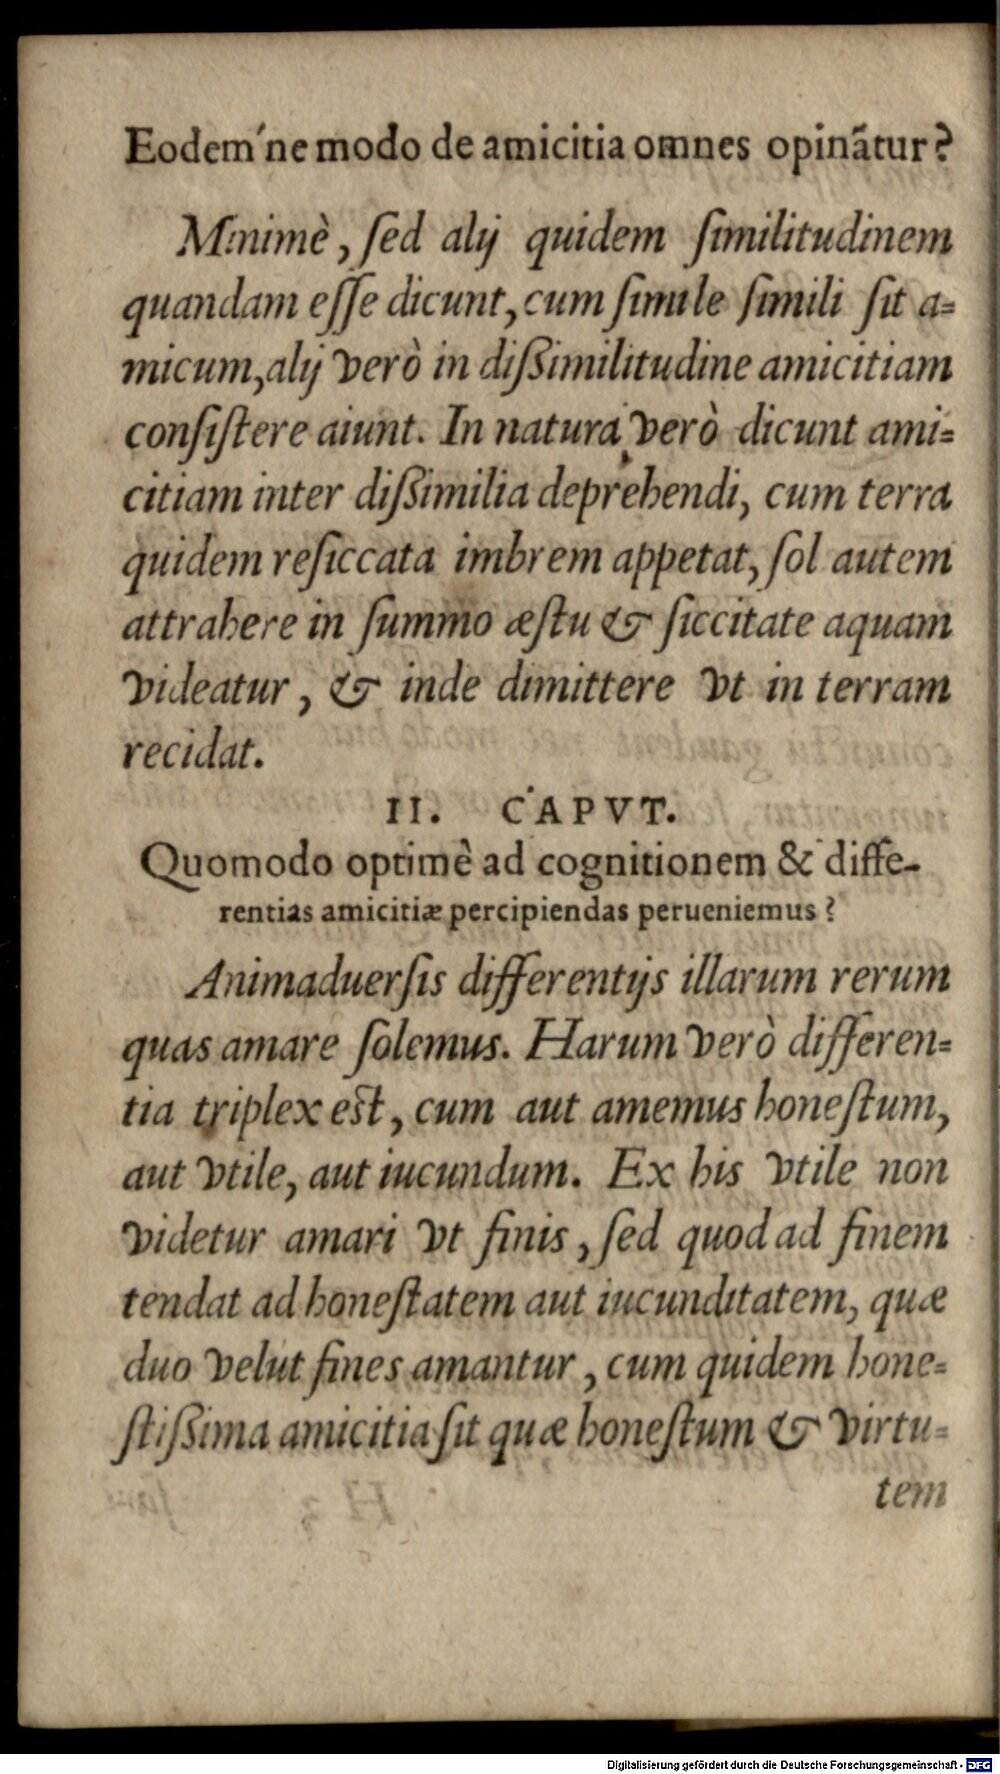 Eodem'ne modo de amicitia omnes opinãtur?
Minimè, ſed alij quidem ſimilitudinem
quandam eſſe dicunt, cum ſimile ſimili ſit a-
micum, alij verò in diſsimilitudine amicitiam
conſiſtere aiunt. In natura verò dicunt ami-
citiam inter diſsimilia deprehendi, cum terra
quidem reſiccata imbrem appetat, ſol autem
attrahere in ſummo æſtu & ſiccitate aquam
videatur, & inde dimittere vt in terram
recidat.
II. CAPVT.
Quomodo optimè ad cognitionem & diffe-
rentias amicitiæ percipiendas perueniemus?
Animaduerſis differentijs illarum rerum
quas amare ſolemus. Harum verò differen-
tia triplex eſt, cum aut amemus honeſtum,
aut vtile, aut iucundum. Ex his vtile non
videtur amari vt finis, ſed quod ad finem
tendat ad honeſtatem aut iucunditatem, quæ
duo velut fines amantur, cum quidem hone-
ſtiſsima amicitia ſit quæ honeſtum & virtu-
tem
Digitalisierung gefördert durch die Deutsche Forschungsgemeinschaft - DFG